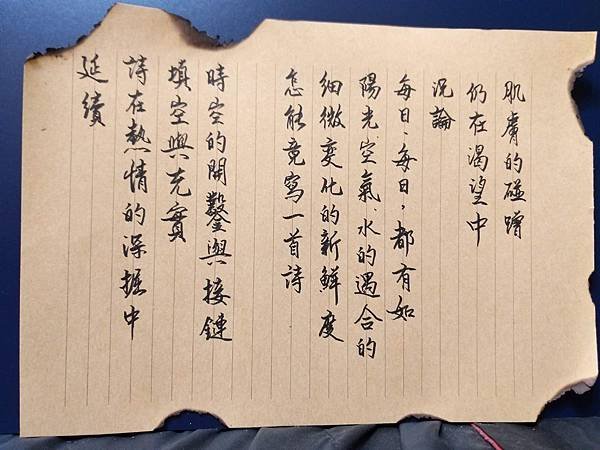 肌膚的碰蹭
仍在渴望中
況論
每日、每日,都有如
陽光、空氣、水的遇合的
細微變化的新鮮度
怎能竟寫一首詩
時空的開鑿與接鏈
填空與充實
詩在熱情的深掘中
延續